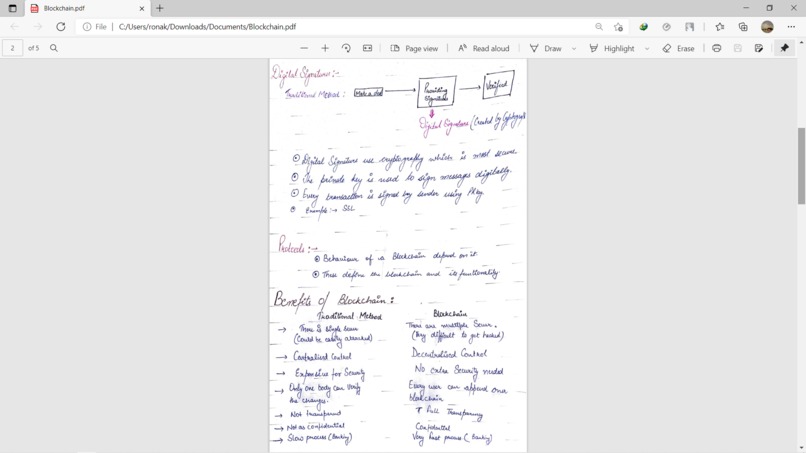 Blockchain.pdf
File
C:/Users/ronak/Downloads/Documents/Blockchain.pdf
2 of 5
Page view
Read aloud
Draw
Highlight
Erase
Digital Signature :-
Traditional Method :
Providing Signatures
Verified
Digital Signature (Created by
Digital Signature use cryptography which is most secure.
private key is used to sign messages digitally.
Every transaction is signed by sender using Pkey
Example :→ SSL
Protocols :→
Behaviour of a Blockchain depend on it.
These define the blockchain and its functionality.
Benefits of Blockchain :
Traditional Method
Blockchain
→ There is single
(Could be easily attacked)
There are multiple
(Very difficult to get hacked)
→ Centralised Control
Decentralised Control
→ Expensive for Security
No extra Security needed
→ Only one body can Verify
the changes.
Every user can append one
blockchain
→ Not transparent
Full
→ Not as confidential
Confidential
→ Slow process (Banking)
Very fast process (Banking)